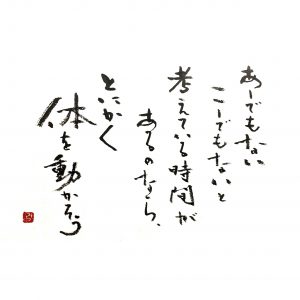 あーでもない
こーでもないと
考えている時間が
あるのなら、
とにかく
体を動かそう